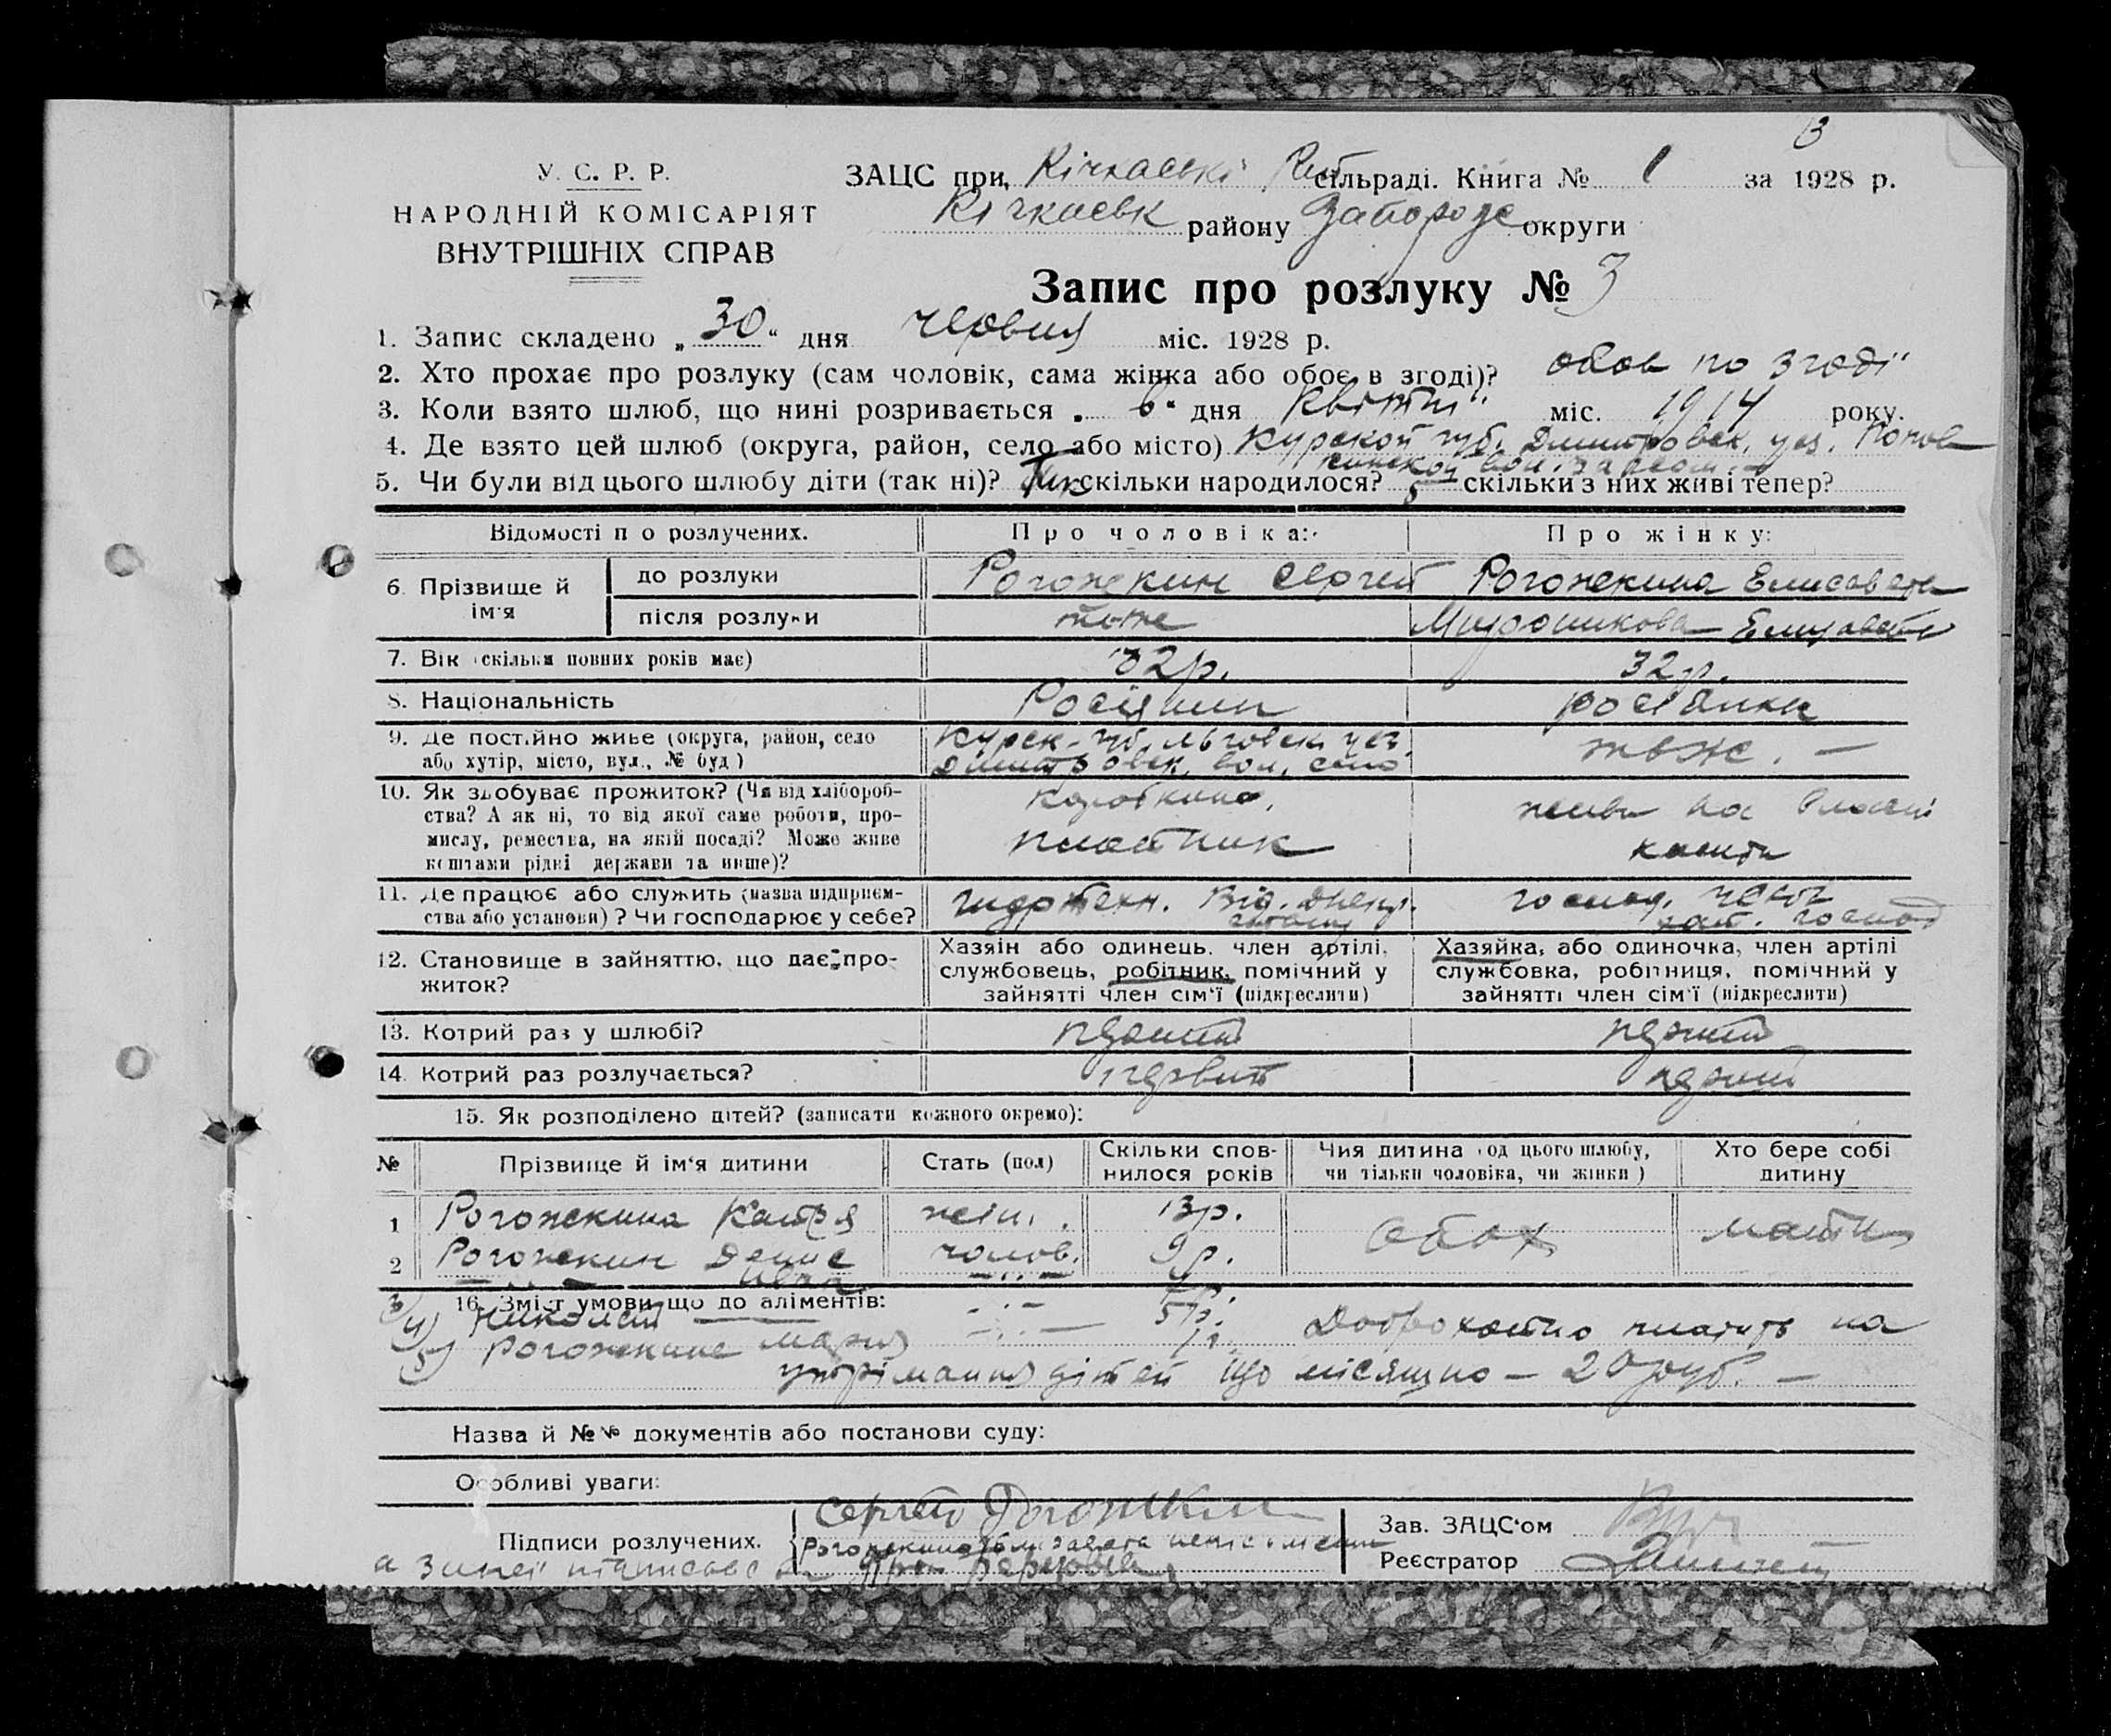 3
У. С. Р. Р.
НАРОДНІЙ КОМІСАРІЯТ
ВНУТРІШНІХ СПРАВ
ЗАЦС при Кічкаські сільраді. Книга № 1 за 1928 р.
Кічкаськ району Запорозь округи
Запис про розлуку № 3
1. Запис складено „30“ дня червня міс. 1928 р.
2. Хто прохає про розлуку (сам чоловік, сама жінка або обоє в згоді)? обоє по згоді
3. Коли взято шлюб, що нині розривається „6“ дня квітня міс. 1914 року.
4. Де взято цей шлюб (округа, район, село або місто) Курской губ. Дмитровск. уез.
5. Чи були від цього шлюбу діти (так ні)? Так скільки народилося? 5 скільки з них живі тепер?
Відомості п о розлучених. Про чоловіка: Про жінку:
6. Прізвище й ім'я до розлуки Рогожкин Сергей Рогожкина Елисавета
після розлуки тоже Мирошникова Елизавета
7. Вік (скільки повних років має) 32р. 32р.
8. Національність Росіянин росіянка
9. Де постійно живе (округа, район, село або хутір, місто, вул., № буд) Курск. губ. Льговск. уез. Дмитровск. вол. село тоже. —
10. Як здобуває прожиток? (Чи від хлібороб-
ства? А як ні, то від якої саме роботи, про-
мислу, ремества, на якій посаді? Може живе
коштами рідні держави та инше)? Коробкино, плотник живе на власні кошти
11. Де працює або служить (назва підприєм-
ства або установи)? Чи господарює у себе? Гидротехн. Від. господ. господ
12. Становище в зайняттю, що дає про-
житок?
Хазяїн або одинець, член артілі,
службовець, робітник, помічний у
зайнятті член сім'ї (підкреслити)
Хазяйка, або одиночка, член артілі
службовка, робітниця, помічний у
зайнятті член сім'ї (підкреслити)
13. Котрий раз у шлюбі? перший перший
14. Котрий раз розлучається? первий перший
15. Як розподілено дітей? (записати кожного окремо):
№ Прізвище й ім'я дитини Стать (пол) Скільки спов-
нилося років Чия дитина (од цього шлюбу,
чи тільки чоловіка, чи жінки) Хто бере собі
дитину
1 Рогожкина Катря жін. 13р. Обох мати
2 Рогожкин Денис чолов. 9р.
16. Зміст умови що до аліментів:
4) Николай 5р. Доброхотно платить на
5) Рогожкина Мария
утрімання дітей що місящно — 20 руб. —
Назва й №№ документів або постанови суду:
Особливі уваги:
Підписи розлучених. Сергей Рогожкин
Рогожкина
Зав. ЗАЦС'ом
Реєстратор